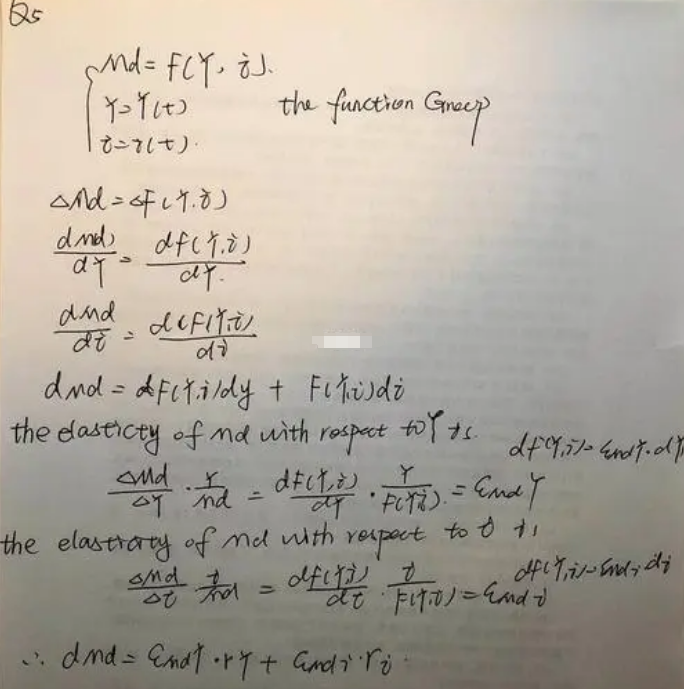 Q5
Md = F(Y, i).
Y = Y(t) the function Group
i = i(t).
ΔMd = ΔF(Y.i)
dMd)/dY = dF(Y,i)/dY.
dMd/di = d(F(Y,i)/di
dMd = dF(Y,i)/dy + F(Y,i)di
the elasticty of Md with respect to Y is. dF(Y,i) = εMdY·dY
ΔMd/ΔY · Y/Md = dF(Y,i)/dY · Y/F(Y,i). = εMdY
the elasticity of Md with respect to i is
Δmd/Δi i/md = dF(Y,i)/di · i/F(Y,i) = εmd i dF(Y,i) = εmdi di
∴ dMd = εMdY·rY + εmdi·ri.